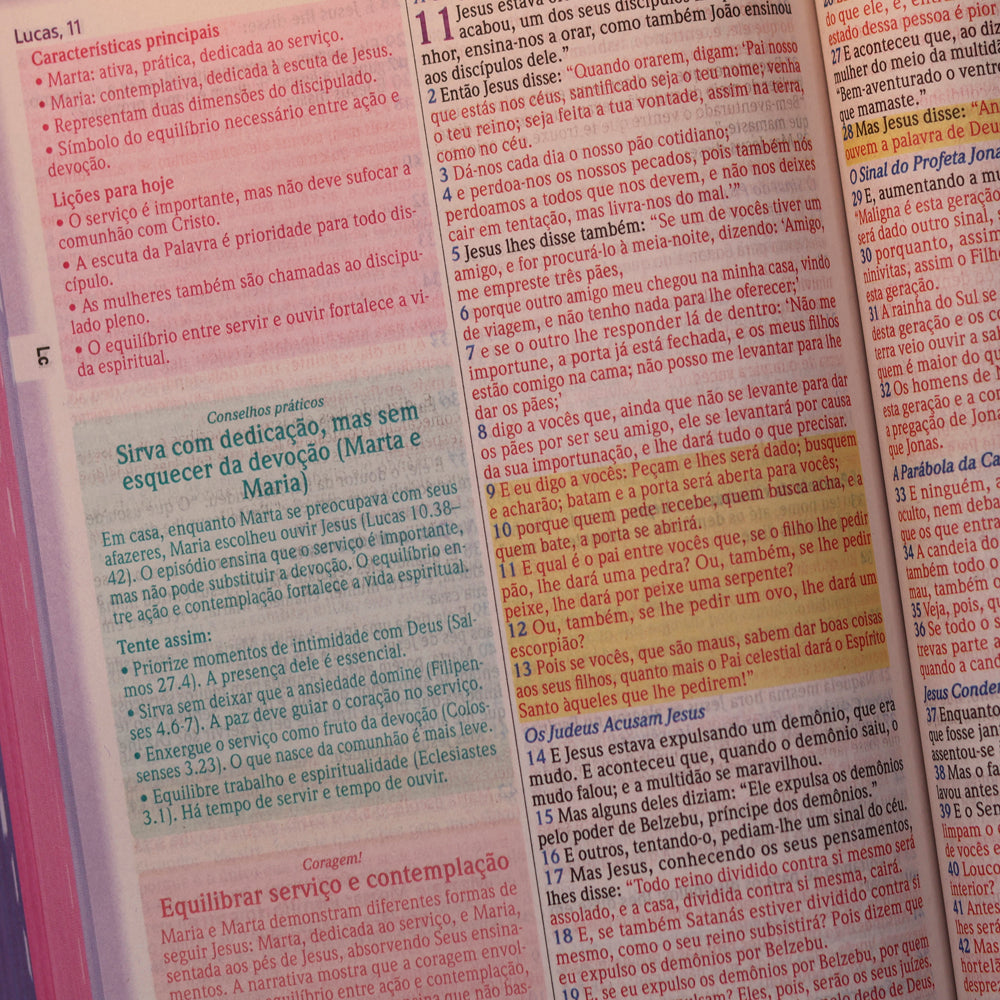 Lucas, 11
Características principais
• Marta: ativa, prática, dedicada ao serviço.
• Maria: contemplativa, dedicada à escuta de Jesus.
• Representam duas dimensões do discipulado.
• Símbolo do equilíbrio necessário entre ação e
devoção.
Lições para hoje
• O serviço é importante, mas não deve sufocar a
comunhão com Cristo.
• A escuta da Palavra é prioridade para todo dis-
cípulo.
• As mulheres também são chamadas ao discipu-
lado pleno.
• O equilíbrio entre servir e ouvir fortalece a vi-
da espiritual.
Lc
Conselhos práticos
Sirva com dedicação, mas sem
esquecer da devoção (Marta e
Maria)
Em casa, enquanto Marta se preocupava com seus
afazeres, Maria escolheu ouvir Jesus (Lucas 10.38–
42). O episódio ensina que o serviço é importante,
mas não pode substituir a devoção. O equilíbrio en-
tre ação e contemplação fortalece a vida espiritual.
Tente assim:
• Priorize momentos de intimidade com Deus (Sal-
mos 27.4). A presença dele é essencial.
• Sirva sem deixar que a ansiedade domine (Filipen-
ses 4.6-7). A paz deve guiar o coração no serviço.
• Enxergue o serviço como fruto da devoção (Colos-
senses 3.23). O que nasce da comunhão é mais leve.
• Equilibre trabalho e espiritualidade (Eclesiastes
3.1). Há tempo de servir e tempo de ouvir.
Coragem!
Equilibrar serviço e contemplação
Maria e Marta demonstram diferentes formas de
seguir Jesus: Marta, dedicada ao serviço, e Maria,
sentada aos pés de Jesus, absorvendo Seus ensina-
mentos. A narrativa mostra que a coragem envol-
equilíbrio entre ação e contemplação,
que não bas-
11 Jesus estava
acabou, um dos seus discípulos
nhor, ensina-nos a orar, como também João ensinou
aos discípulos dele.”
2 Então Jesus disse: “Quando orarem, digam: ‘Pai nosso
que estás nos céus, santificado seja o teu nome; venha
o teu reino; seja feita a tua vontade, assim na terra,
como no céu.
3 Dá-nos cada dia o nosso pão cotidiano;
4 e perdoa-nos os nossos pecados, pois também nós
perdoamos a todos que nos devem, e não nos deixes
cair em tentação, mas livra-nos do mal.’”
5 Jesus lhes disse também: “Se um de vocês tiver um
amigo, e for procurá-lo à meia-noite, dizendo: ‘Amigo,
me empreste três pães,
6 porque outro amigo meu chegou na minha casa, vindo
de viagem, e não tenho nada para lhe oferecer;’
7 e se o outro lhe responder lá de dentro: ‘Não me
importune, a porta já está fechada, e os meus filhos
estão comigo na cama; não posso me levantar para lhe
dar os pães;’
8 digo a vocês que, ainda que não se levante para dar
os pães por ser seu amigo, ele se levantará por causa
da sua importunação, e lhe dará tudo o que precisar.
9 E eu digo a vocês: Peçam e lhes será dado; busquem
e acharão; batam e a porta será aberta para vocês;
10 porque quem pede recebe, quem busca acha, e a
quem bate, a porta se abrirá.
11 E qual é o pai entre vocês que, se o filho lhe pedir
pão, lhe dará uma pedra? Ou, também, se lhe pedir
peixe, lhe dará por peixe uma serpente?
12 Ou, também, se lhe pedir um ovo, lhe dará um
escorpião?
13 Pois se vocês, que são maus, sabem dar boas coisas
aos seus filhos, quanto mais o Pai celestial dará o Espírito
Santo àqueles que lhe pedirem!”
Os Judeus Acusam Jesus
14 E Jesus estava expulsando um demônio, que era
mudo. E aconteceu que, quando o demônio saiu, o
mudo falou; e a multidão se maravilhou.
15 Mas alguns deles diziam: “Ele expulsa os demônios
pelo poder de Belzebu, príncipe dos demônios.”
16 E outros, tentando-o, pediam-lhe um sinal do céu.
17 Mas Jesus, conhecendo os seus pensamentos,
lhes disse: “Todo reino dividido contra si mesmo será
assolado, e a casa, dividida contra si mesma, cairá.
18 E, se também Satanás estiver dividido contra si
mesmo, como o seu reino subsistirá? Pois dizem que
eu expulso os demônios por Belzebu.
19 E, se eu expulso os demônios por Belzebu, por quem
Eles, pois, serão os seus juízes.
dedo de Deus,
do que ele, e,
estado dessa pessoa é pior
27 E aconteceu que, ao diz
mulher do meio da multid
“Bem-aventurado o ventre
que mamaste.”
28 Mas Jesus disse:
ouvem a palavra de Deus
O Sinal do Profeta Jona
29 E, aumentando a mu
“Maligna é esta geração
será dado outro sinal,
30 porquanto, assim
ninivitas, assim o Filho
esta geração.
31 A rainha do Sul se
desta geração e os c
terra veio ouvir a sa
quem é maior do qu
32 Os homens de
esta geração e a con
a pregação de Jona
que Jonas.
A Parábola da Ca
33 E ninguém, a
oculto, nem deba
que os que entra
34 A candeia do
também todo o
mau, também
35 Veja, pois, q
36 Se todo o s
trevas parte a
quando a cand
Jesus Conden
37 Enquanto
que fosse jan
assentou-se
38 Mas o fa
lavou antes
39 E o Sen
limpam o
de vocês e
40 Louco
interior?
41 Antes
lhes será
42 Mas
hortelã
despre